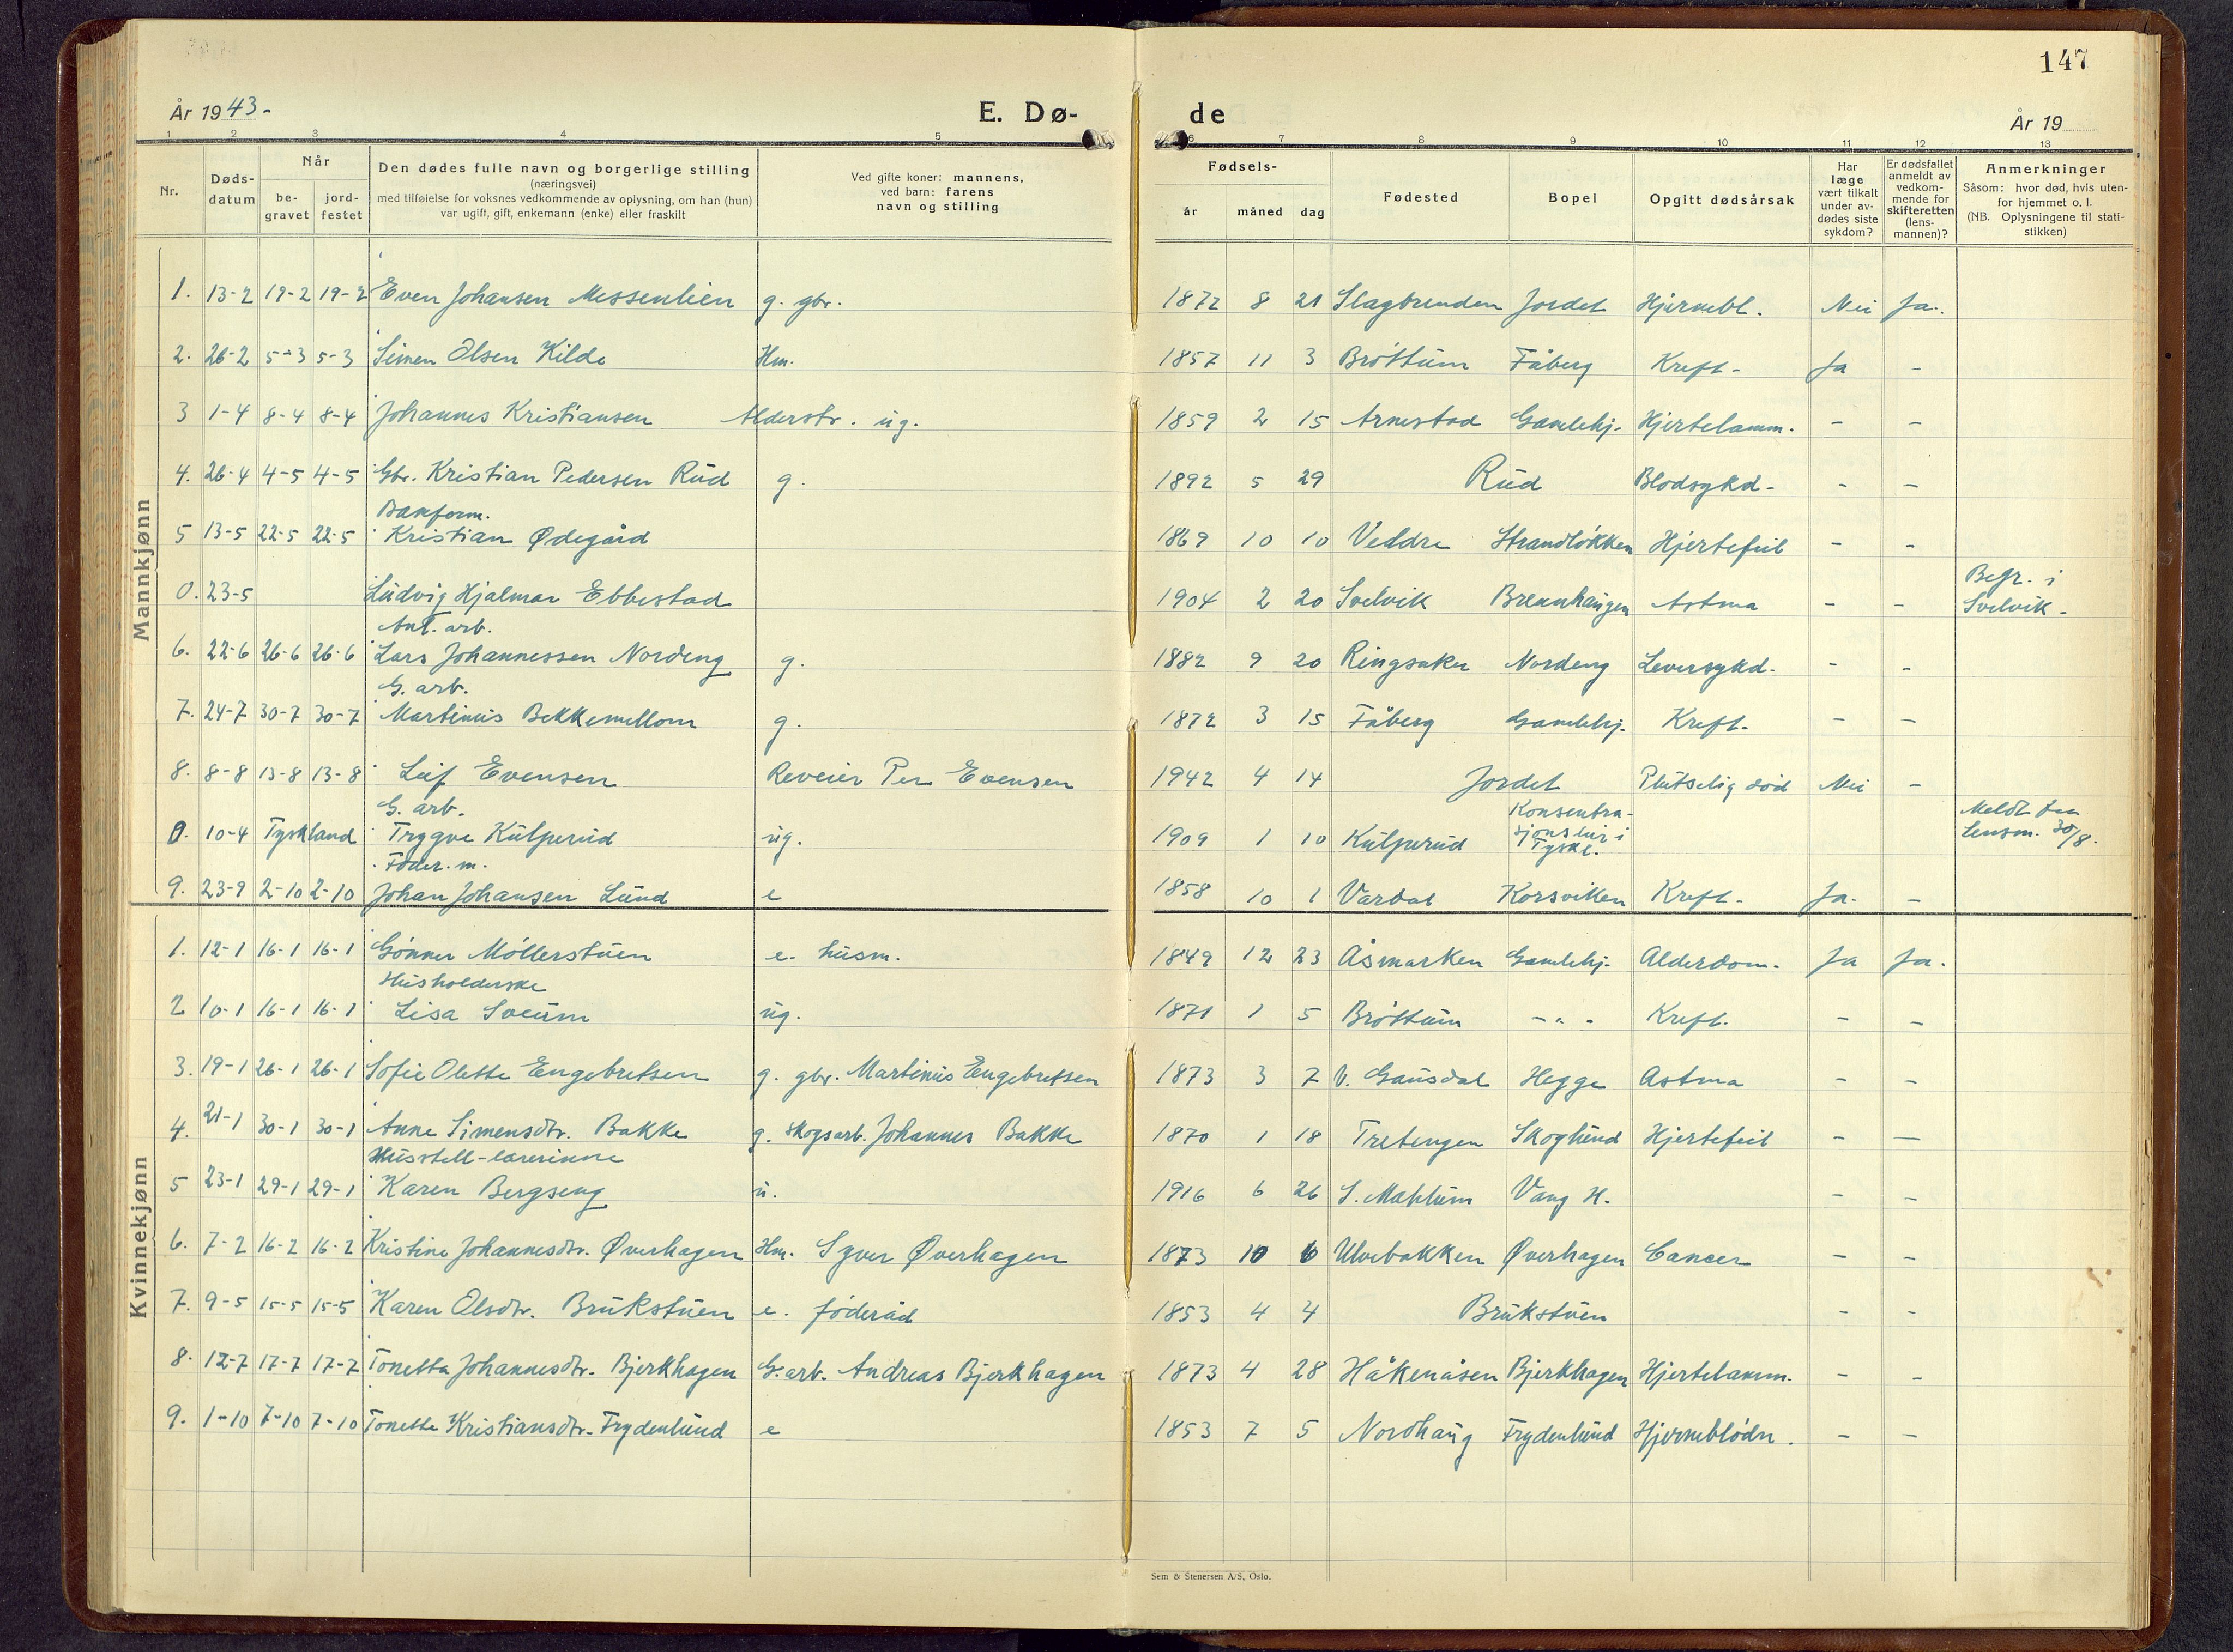 147
År 1943-
E. Dø-
de
År 19
1 2 3 4 5
6 7 8 9 10 11 12 13
Nr.
Døds-
datum
Når
be-
gravet
jord-
festet
Den dødes fulle navn og borgerlige stilling
(næringsvei)
med tilføielse for voksnes vedkommende av oplysning, om han (hun)
var ugift, gift, enkemann (enke) eller fraskilt
Ved gifte koner: mannens,
ved barn: farens
navn og stilling
Fødsels-
år måned dag
Fødested
Bopel
Opgitt dødsårsak
Har
læge
vært tilkalt
under av-
dødes siste
sykdom?
Er dødsfallet
anmeldt av
vedkom-
mende for
skifteretten
(lens-
mannen)?
Anmerkninger
Såsom: hvor død, hvis uten-
for hjemmet o. l.
(NB. Oplysningene til stati-
stikken)
Mannkjønn
1. 13-2 19-2 19-2 Even Johansen Messenlien g. gbr. 1872 8 21 Slagbrenden Jordet Hjernebl. Nei Ja.
2. 26-2 5-3 5-3 Simen Olsen Kilde Hm. 1857 11 3 Brøttum Fåberg Kreft- Ja -
3 1-4 8-4 8-4 Johannes Kristiansen Alderstr. ug. 1859 2 15 Arnestad Gamlehj. Hjertelamm. - -
4. 26-4 4-5 4-5 Gbr. Kristian Pedersen Rud g. 1892 5 29 Rud Blodsykd- - -
Bakform.
5 13-5 22-5 22-5 Kristian Ødegård 1869 10 10 Veldre Strandløkken Hjertefeil - -
0. 23-5 Ludvig Hjalmar Ebbestad 1904 2 20 Svelvik Brennhaugen Astma - - Begr. i
Svelvik-
Anl. arb.
6. 22-6 26-6 26-6 Lars Johannessen Nordeng g. 1882 9 20 Ringsaker Nordeng Leversykd- - -
G. arb.
7. 24-7 30-7 30-7 Martinus Bekkemellom g. 1872 3 15 Fåberg Gamlehj. Kreft- - -
8. 8-8 13-8 13-8 Leif Evensen Reveier Per Evensen 1942 4 14 Jordet Plutselig død Nei -
G. arb.
0. 10-4 Tyskland Trygve Kulperud ug. 1909 1 10 Kulperud Konsentra-
sjonsleir i
Tyskl.
Meldt fra
lensm. 30/8.
Føder. m.
9. 23-9 2-10 2-10 Johan Johansen Lund e 1858 10 1 Vardal Korsvikken Kreft- Ja- -
Kvinnekjønn
1. 12-1 16-1 16-1 Gønner Møllerstuen e. husm. 1849 12 23 Åsmarken Gamlehj. Alderdom- Ja Ja.
Husholderske
2 10-1 16-1 16-1 Lisa Sveum ug. 1871 1 5 Brøttum -"- Kreft. - -
3. 19-1 26-1 26-1 Sofie Olette Engebretsen g. gbr. Martinus Engebretsen 1873 3 7 V. Gausdal Hegge Astma - -
4. 21-1 30-1 30-1 Anne Simensdtr. Bakke g. skogsarb. Johannes Bakke 1870 1 18 Tretengen Skoglund Hjertefeil - -
Husstell-lærerinne
5 23-1 29-1 29-1 Karen Bergseng u. 1916 6 26 S. Mæhlum Vang H. - -
6. 7-2 16-2 16-2 Kristine Johannesdtr. Øverhagen Hm. Syver Øverhagen 1873 10 6 Ulvebakken Øverhagen Cancer - -
7. 9-5 15-5 15-5 Karen Olsdtr. Brukstuen e. føderåd 1853 4 4 Brukstuen - -
8. 12-7 17-7 17-7 Tonetta Johannesdtr. Bjerkhagen G. arb. Andreas Bjerkhagen 1873 4 28 Håkenåsen Bjerkhagen Hjertelamm. - -
9. 1-10 7-10 7-10 Tonette Kristiansdtr. Frydenlund e 1853 7 5 Nordhaug Frydenlund Hjerneblødn. - -
Sem & Stenersen A/S, Oslo.